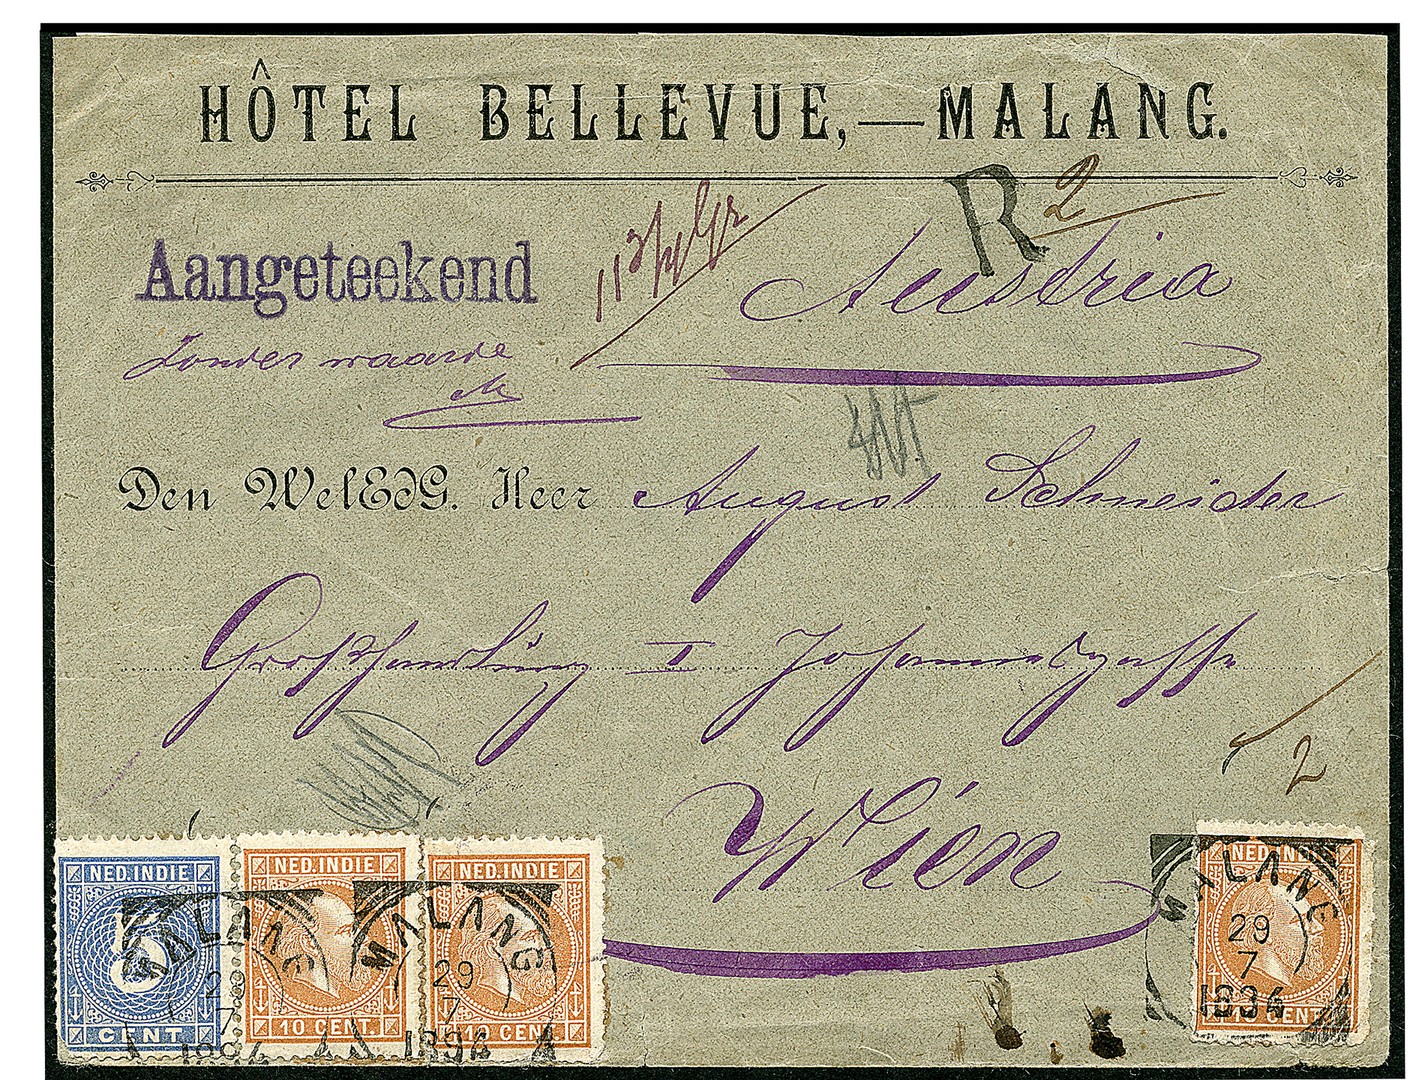 HÔTEL BELLEVUE,—MALANG.
R 2
Aangeteekend
Austria
Zonder waarde
Den WelEdG. Heer August Schneider
Großhandlung I Johannesgasse
2
Wien
NED. INDIE
5
CENT
NED. INDIE
10 CENT.
NED. INDIE
10 CENT.
MALANG
29
7
1894
MALANG
29
7
1894
NED. INDIE
10 CENT.
MALANG
29
7
1894